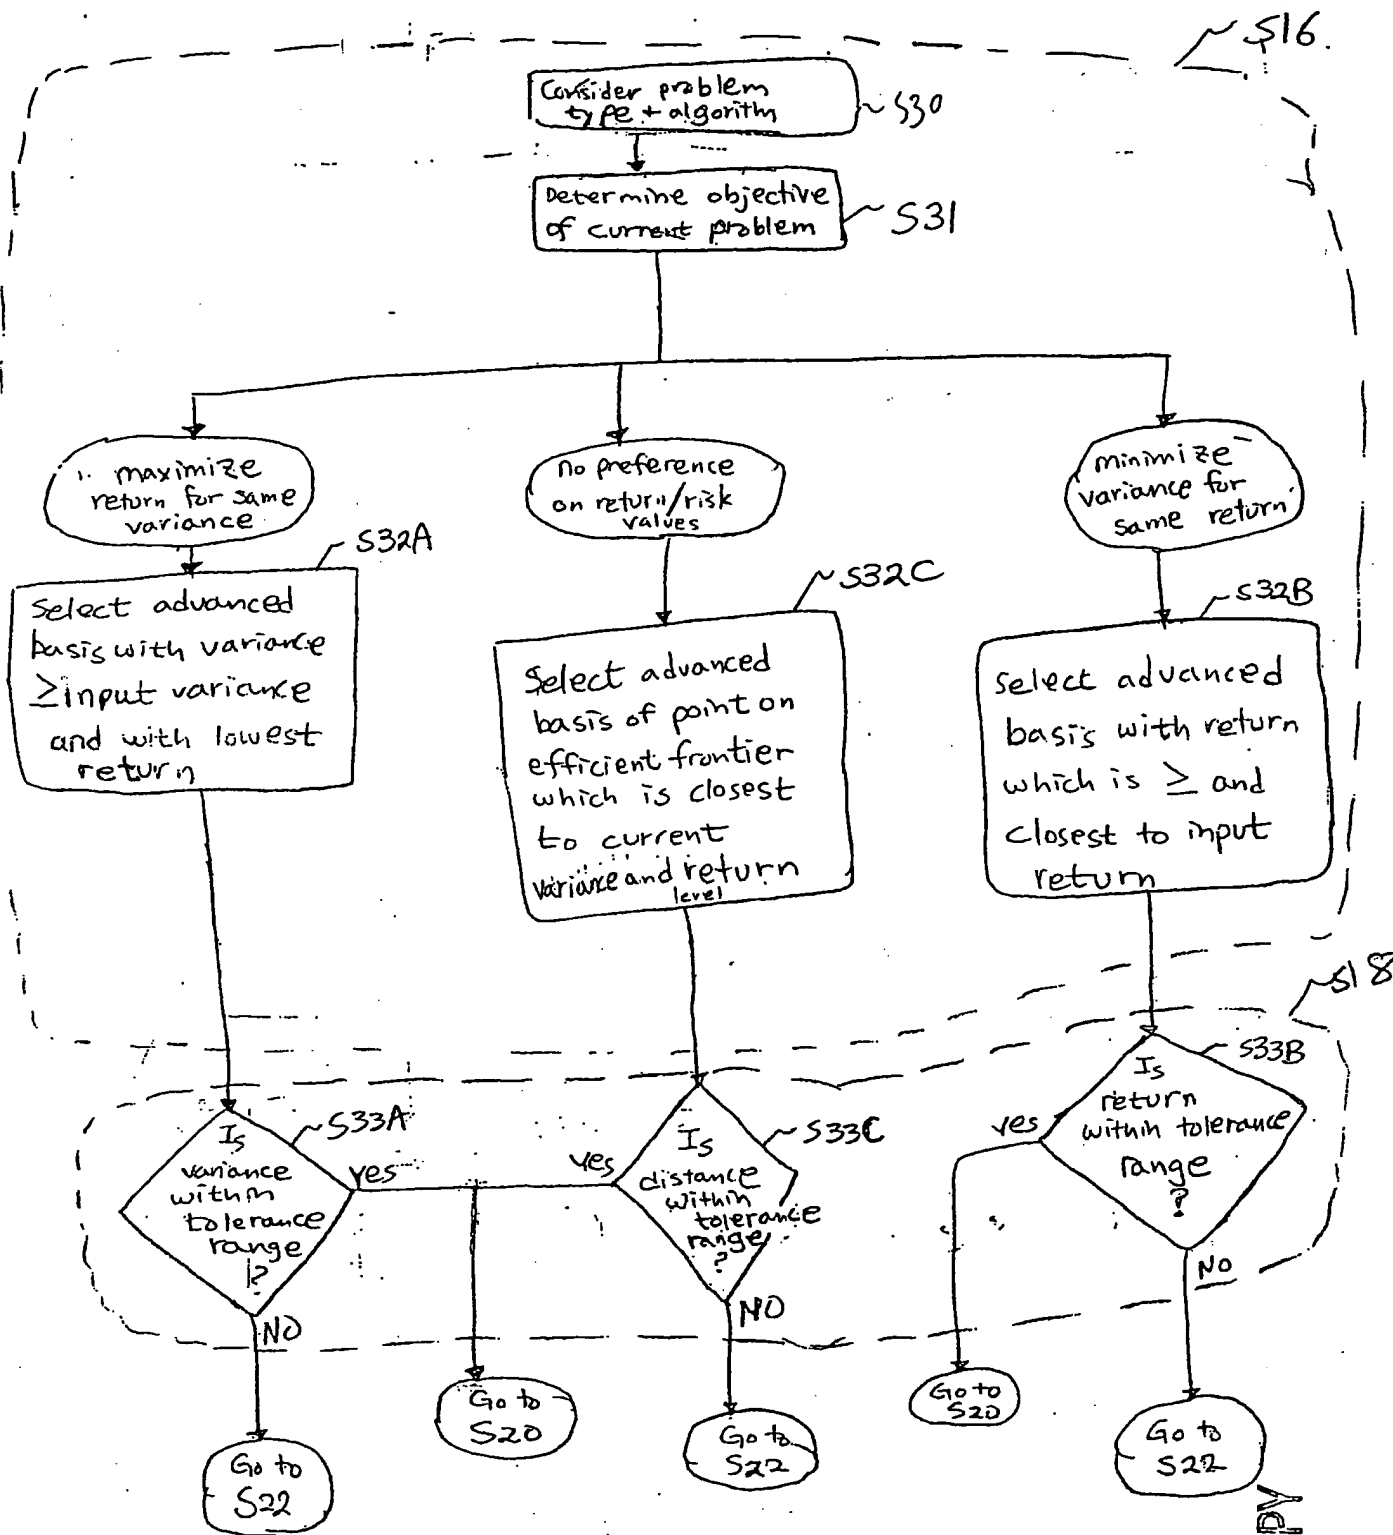 S16.
Consider problem
type + algorithm
S30
Determine objective
of current problem
S31
maximize
return for same
variance
no preference
on return/risk
values
minimize
variance for
same return
S32A
Select advanced
basis with variance
≥ input variance
and with lowest
return
S32C
Select advanced
basis of point on
efficient frontier
which is closest
to current
variance and return
level
S32B
select advanced
basis with return
which is ≥ and
closest to input
return
S18
S33A
Is
variance
within
tolerance
range
?
yes
NO
S33C
Is
distance
within
tolerance
range
?
yes
NO
S33B
Is
return
within tolerance
range
?
yes
NO
Go to
S22
Go to
S20
Go to
S22
Go to
S20
Go to
S22
PY